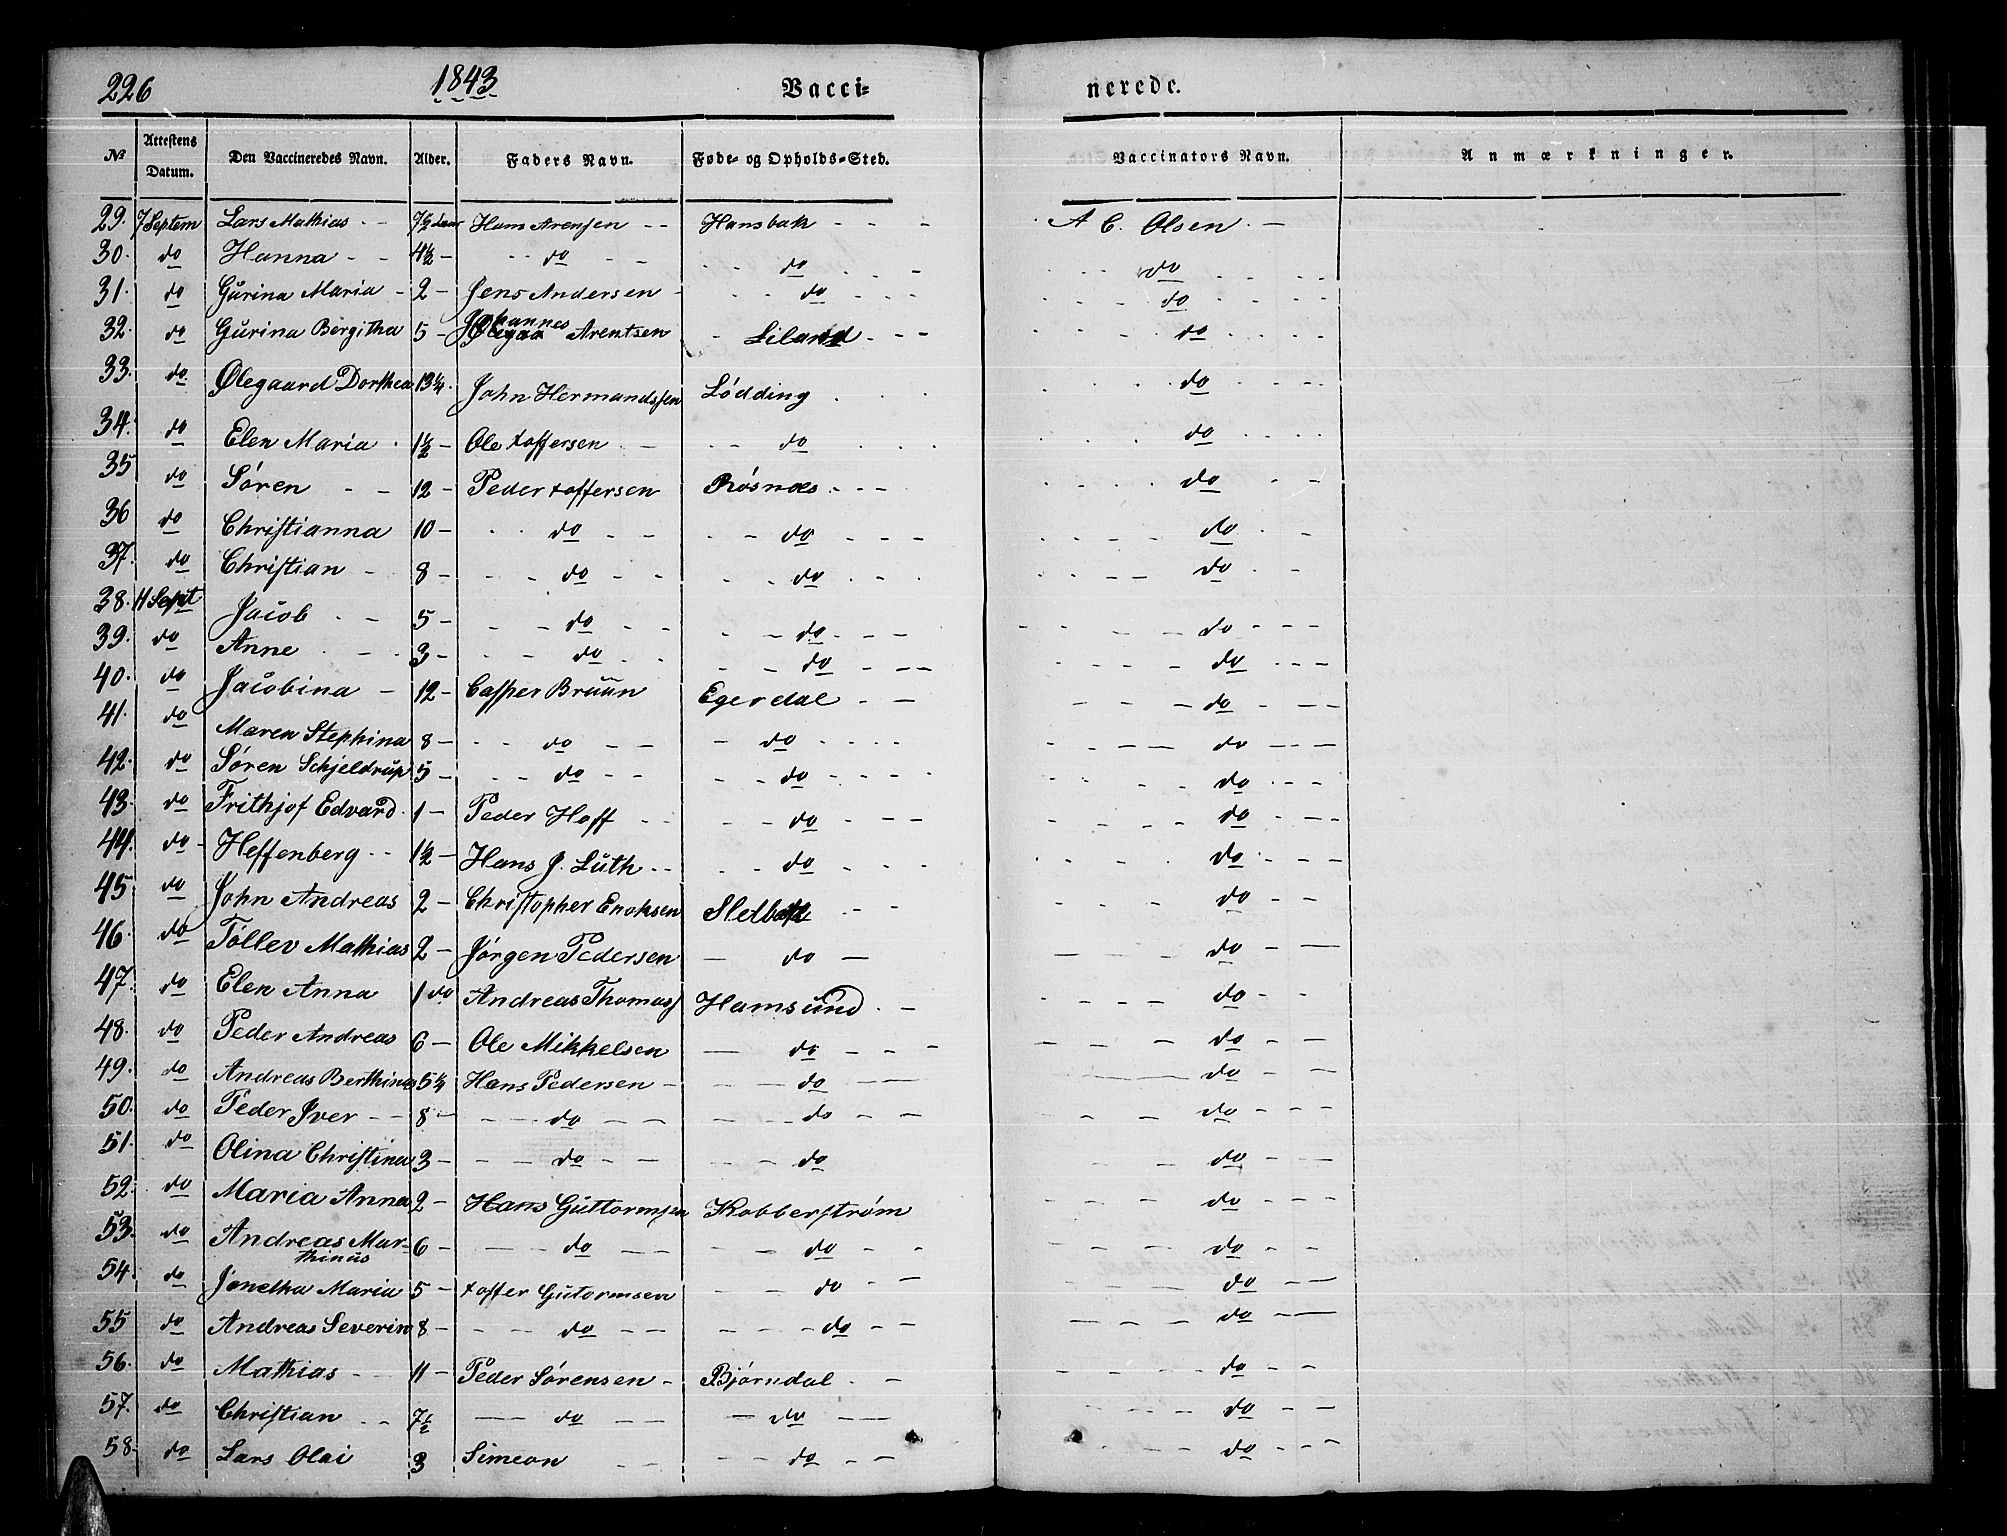 226 1843 Vacci- nerede.
№ Attestens Datum. Den Vaccineredes Navn. Alder. Faders Navn. Føde- og Opholds-Sted. Vaccinators Navn. Anmærkninger.
29. 7 Septem Lars Mathias - - 7½ Hans Arensen - - Hansbak - - - A C. Olsen. -
30. do Hanna - - 4½ - do - - do do
31. do Gurina Maria - 2 - Jens Andersen - do do
32. do Gurina Bergitha 5 - Johannes Arentsen - Liland - - - do
33. do Ølegaard Dorthea 13¼. John Hermandssen Lódding do
34. do Elen Maria 1½ - Ole xoffersen - do do
35 do Sóren - - 12 - Peder xoffersen Rósnæs - - - do
36 do Christianna 10 - do do do
37. do Christian - 8 - do do do
38. 11 Sept Jacob - - 5 - do do do
39. do Anne - 3 - do do do
40. do Jacobina - 12 - Casper Bruun Egerdal - - do
41. do Maren Stephina 8 - do do do
42. do Sóren Schjeldrup 5 - do do do
43. do Frithjof Edvard. 1 - Peder Hoff - - do do
44. do Heffenberg - - 1½ - Hans J. Luth - - do do
45. do John Andreas 2 - Christopher Enoksen Sletbak - - do
46. do Tóllev Mathias 2 - Jórgen Pedersen - do - do
47. do Elen Anna 1 do Andreas Thomas Hamsund. - do
48. do Peder Andreas 6 - Ole Mikkelsen - do do
49. do Andreas Berthinus 5¼ Hans Pedersen - do do
50. do Peder Iver - - 8 - do do do
51. do Olina Christina 3 - do do do
52. do Maria Anna 2 - Hans Guttormsen Kobberstrøm do
53. do Andreas Mar-
thinus 6 - do do do
54. do Jonetha Maria 5 - xoffer Gutormsen do do
55 do Andreas Severin 8 - do do do
56. do Mathias - - 11 - Peder Sórensen - Bjórndal - - do
57. do Christian - - 7½ do do do
58. do Lars Olai 3 Simeon - - do do